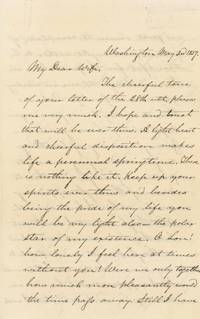 Washington May 3rd 1857.
My Dear Wife,
The cheerful tone
of your letter of the 28th ult. pleases
me very much. I hope and trust
that will be ever thine. A light heart
and cheerful disposition makes
life a perennial springtime. There
is nothing like it. Keep up your
spirits ever thus and besides
being the pride of my life you
will be my light also the polar
star of my existence. O
how lonely I feel here at times
without you! Were we only together
how much more pleasantly would
the time pass away. Still I have